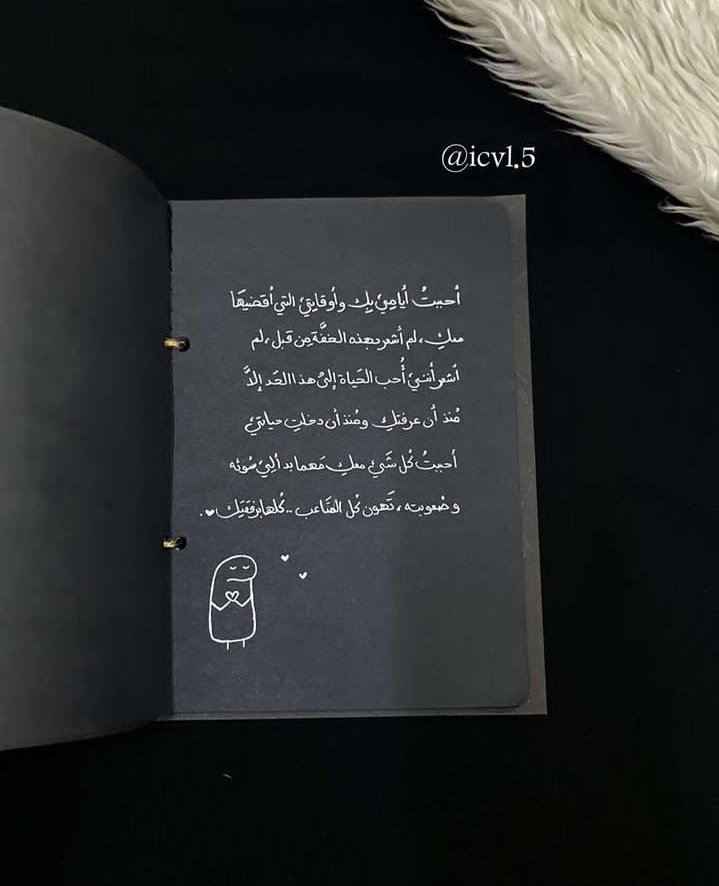 @icvl.5
أحببتُ أيامي بِك وأوقاتي التي أقضيها
معكِ، لم أشعر بهذه الخفَّة مِن قبل، لم
أشعر أنني أُحب الحَياة إلىٰ هذا الحَد إلاَّ
مُنذ أن عرفتكِ ومُنذ أن دخلتِ حياتي
أحببتُ كُل شَيء معكِ مَهما بدا لِي سُوئه
وصُعوبته، تَهون كُل المتَاعب .. كُلها برفقتِك ♥.